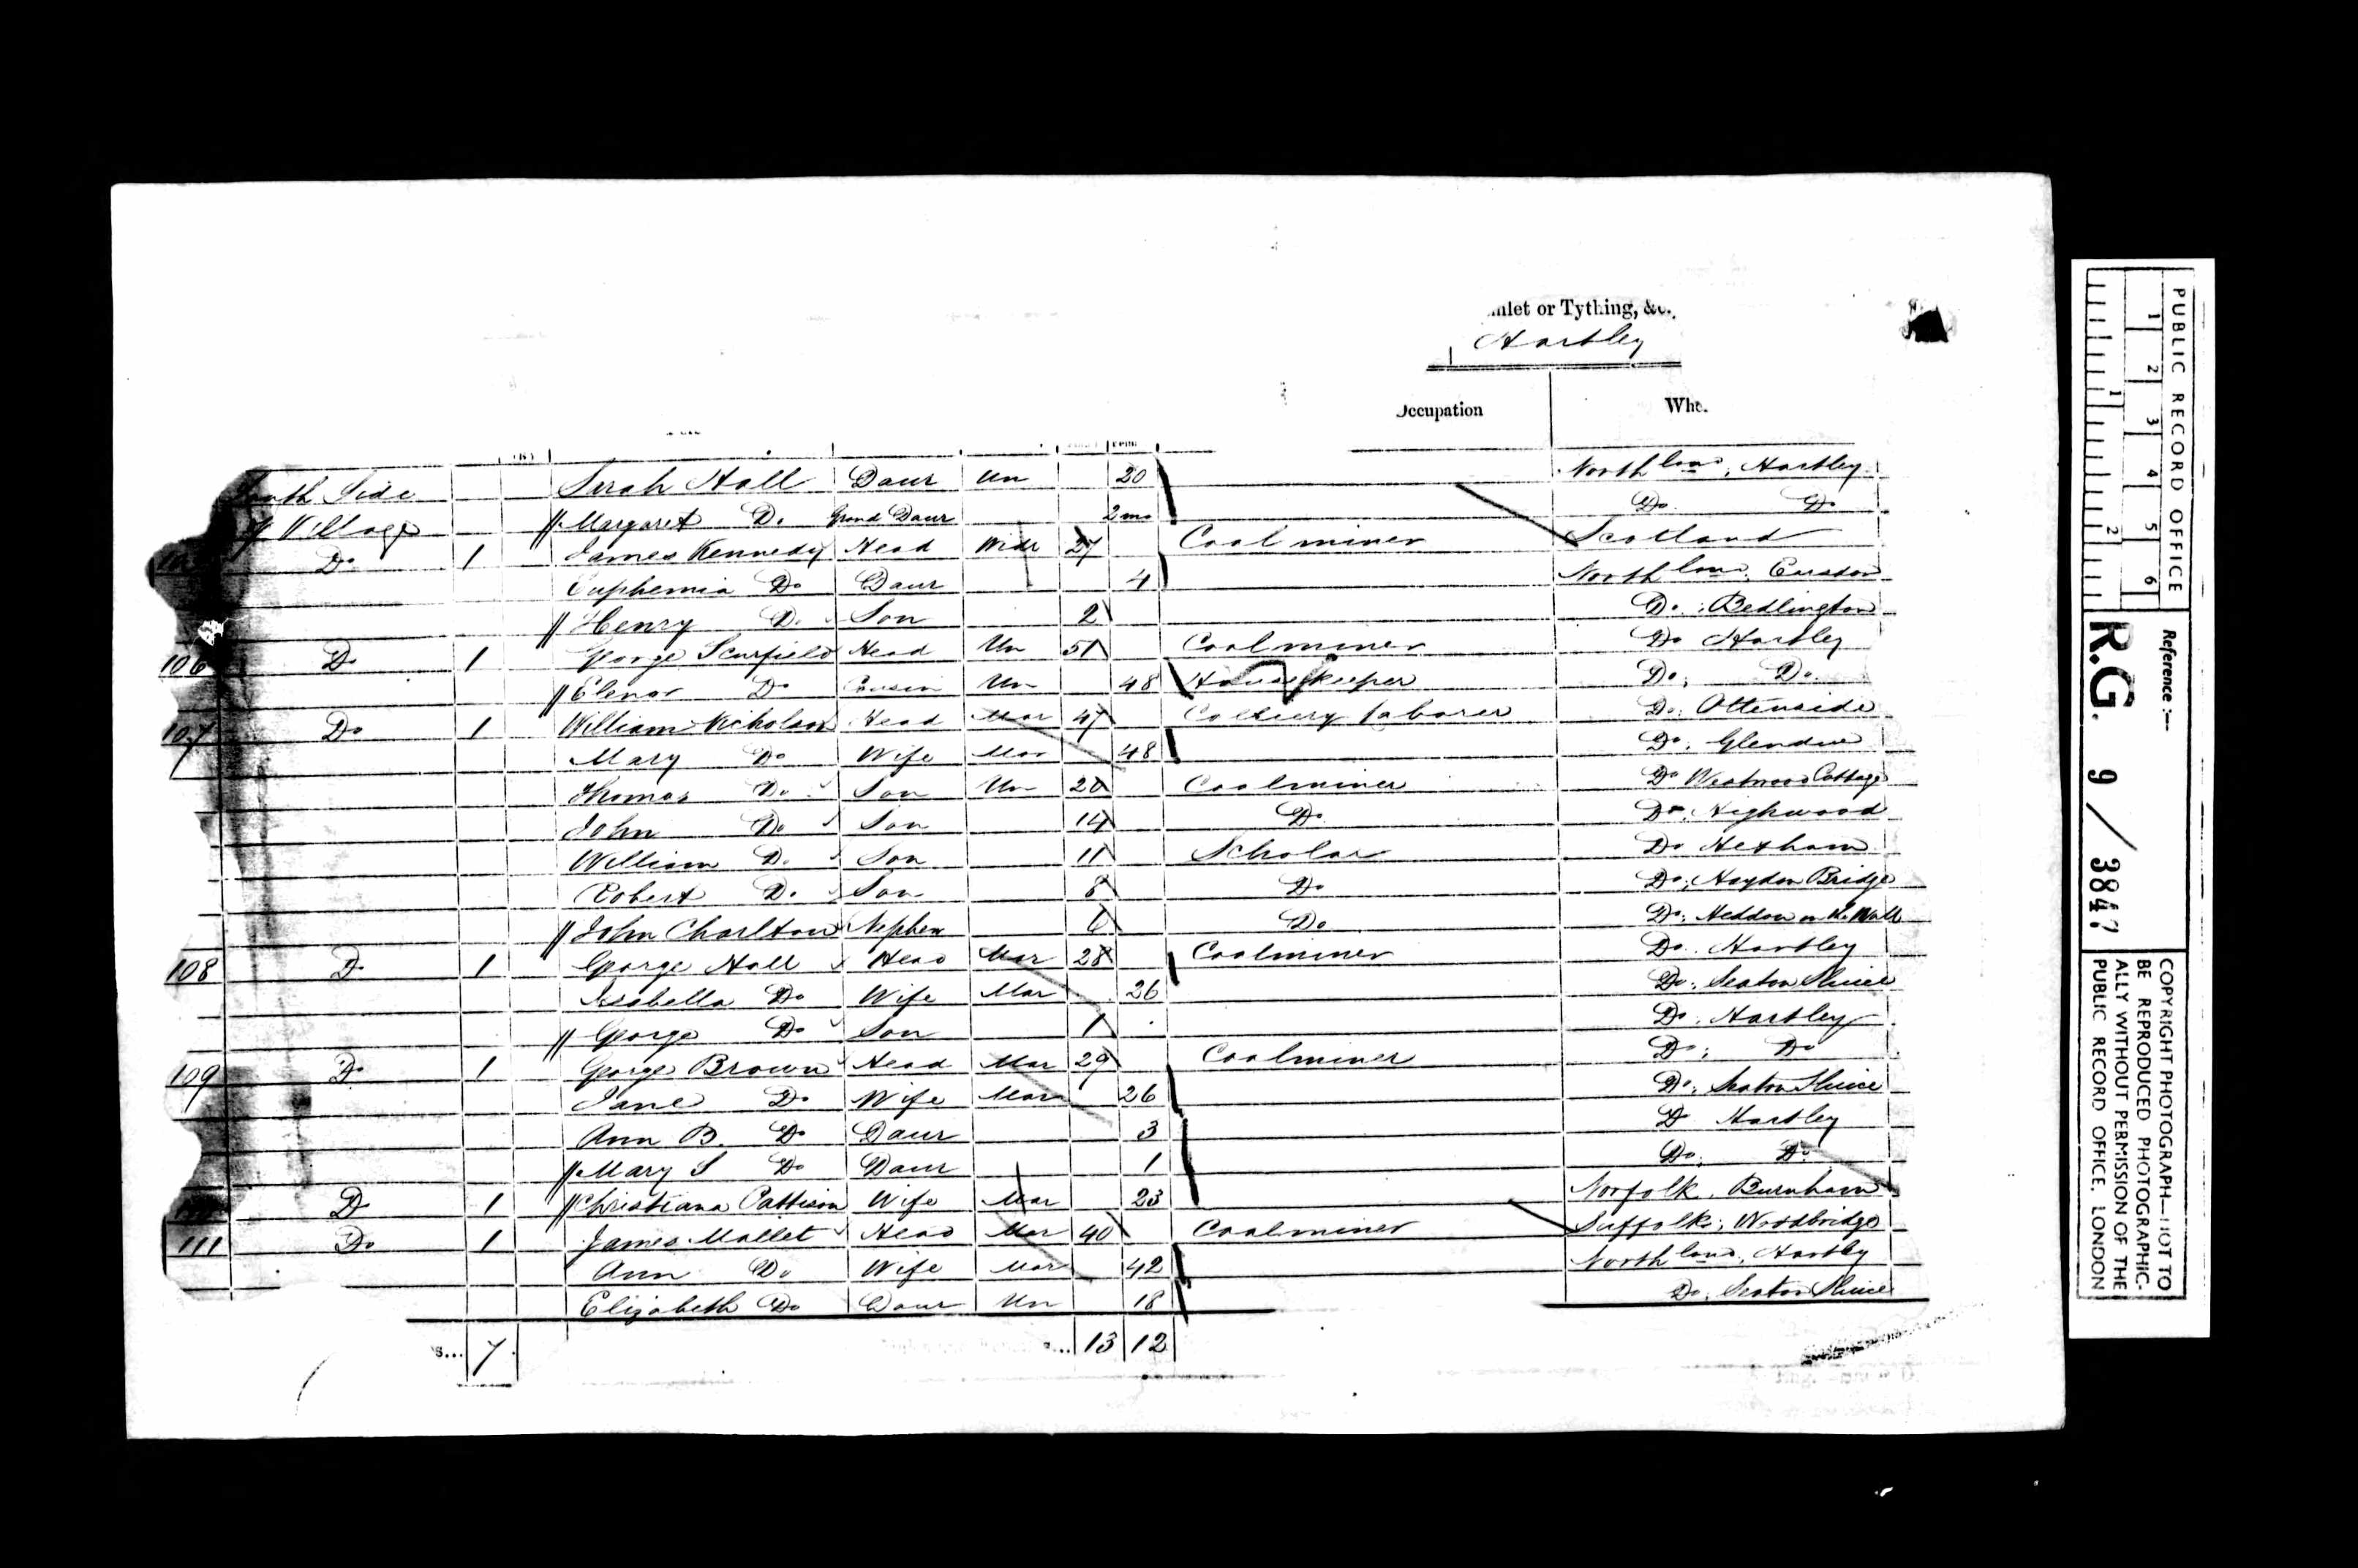 or Tything, &c.
Hartley
Occupation
South Side Sarah Hall Daur Un 20 Northland, Hartley
of Village Margaret Do Grand Daur 2 mo Do Do
Do 1 James Kennedy Head Widr 27 Coal miner Scotland
Euphemia Do Daur 4 Northland,
Henry Do Son 2 Do; Bedlington
106 Do 1 George Scurfield Head Un 51 Coalminer Do Hartley
Elenor Do Cousin Un 48 Housekeeper Do; Do
107 Do 1 William Nicholson Head Mar 47 Colliery laborer Do;
Mary Do Wife Mar 48 Do; Glendue
Thomas Do Son Un 20 Coalminer Do Westwood Cottage
John Do Son 14 Do Do; Highwood
William Do Son 11 Scholar Do Hexham
Robert Do Son 8 Do Do; Haydon Bridge
John Charlton Nephew 6 Do Do; Heddon on the Wall
108 Do 1 George Hall Head Mar 28 Coalminer Do Hartley
Isabella Do Wife Mar 26 Do; Seaton Sluice
George Do Son 1 Do, Hartley
109 Do 1 George Brown Head Mar 29 Coalminer Do; Do
Jane Do Wife Mar 26 Do; Seaton Sluice
Ann B. Do Daur 3 Do Hartley
Mary S Do Daur 1 Do; Do
Do 1 Christiana Pattison Wife Mar 23 Norfolk, Burnham
111 Do 1 James Mallet Head Mar 40 Coalminer Suffolk; Woodbridge
Ann Do Wife Mar 42 Northland, Hartley
Elizabeth Do Daur Un 18 Do; Seaton Sluice
7 13 12
PUBLIC RECORD OFFICE
1 2 3 4 5 6
1 2
Reference :—
R.G. 9 / 3847
COPYRIGHT PHOTOGRAPH—NOT TO
BE REPRODUCED PHOTOGRAPHIC-
ALLY WITHOUT PERMISSION OF THE
PUBLIC RECORD OFFICE, LONDON